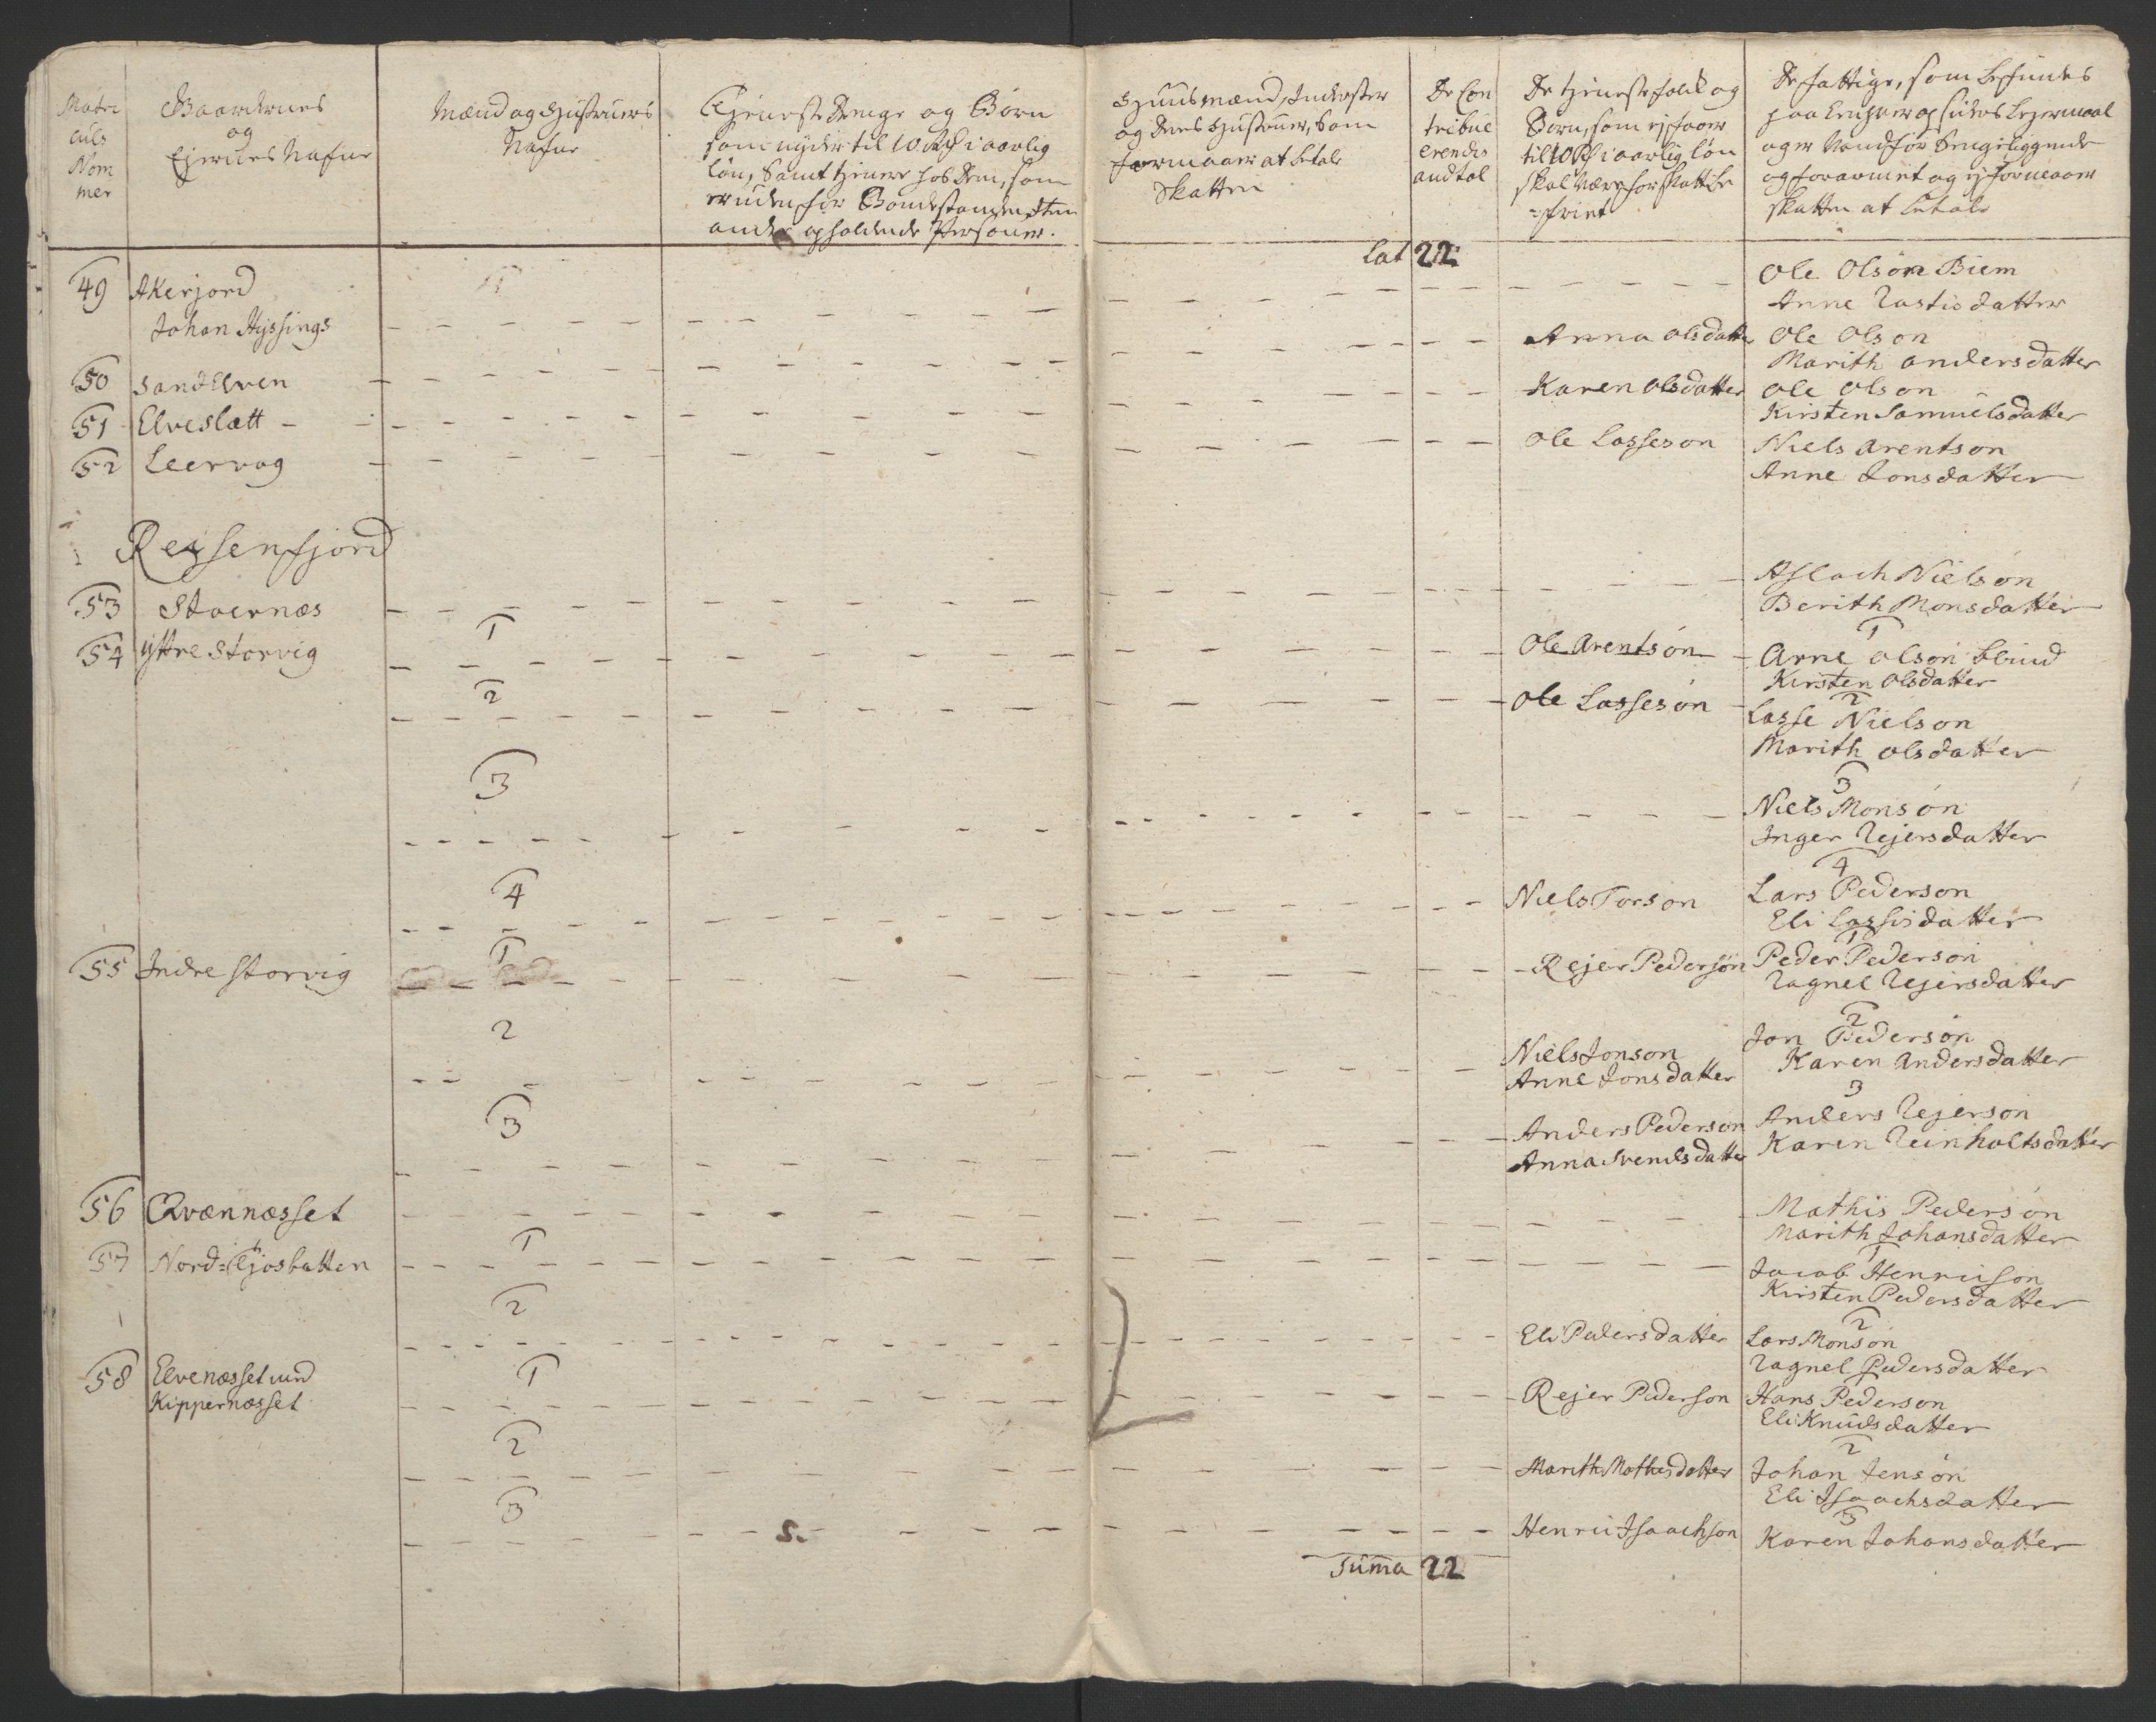 Matri
culs
Nom
mer
Gaardernes
og
Ejernes Nafne
Mænd og Hustruers
Nafne
Tjeneste Drenge og Børn
som nyder til 10 Rd i aarlig
løn, samt tjener hos dem, som
er uden for Bondestanden, Item
andre opholdende Personer.
Huusmænd, Inderster
og deres Hustruer, som
formaaer at betale
Skatten
De Con
tribue
erendes
andtal
De tjenestefolk og
Børn, som ej faaer
til 10 Rd i aarlig løn
skal være for skatte be
=friet
De fattige, som befindes
paa Enhver opsidders Lejermaal
og er Vandfør Sengeliggende
og forarmet og ej formaaer
skatten at betale
Lat 22
49 Akerjord
Johan Hyssings
Ole Olsøn Biem
Anne Rastisdatter
50 Sandelven
Anna Olsdatter
Ole Olson
Marith Andersdatter
51 Elveslætt
Karen Olsdatter
Ole Olson
Kirsten Samuelsdatter
52 Leervog
Ole Lasseson
Niels Arentson
Anne Jonsdatter
Reisenfjord
53 Stoernæs
Aslach Nielsøn
Berith Monsdatter
54 yttre Storvig
1
Ole Arentsøn
1
Arne Olsøn blind
Kirsten Olsdatter
2
Ole Lassesøn
2
Lasse Nielson
Marith Olsdatter
3
3
Niels Monsøn
Inger Rejersdatter
4
Niels Torson
4
Lars Pederson
Eli Lassisdatter
55 Indre Storvig
1
Rejer Pedersøn
1
Peder Pederson
Ragnel Rejersdatter
2
Niels Jonson
Anne Jonsdatter
2
Jon Pedersøn
Karen Andersdatter
3
Anders Pederson
Anna Svendsdatter
3
Anders Rejerson
Karen Reinholtsdatter
56 Qvænnæsset
Mathis Pedersøn
Marith Johansdatter
57 Nord=Tjosbatten
1
1
Jacob Henricson
Kirsten Pedersdatter
2
Eli Pedersdatter
2
Lars Monsøn
Ragnel Pedersdatter
58 Elvenæsset med
Kippernæsset
1
Rejer Pederson
Hans Pederson
Eli Knudsdatter
2
Marith Mathisdatter
2
Johan Jensøn
Eli Isaachsdatter
3
S.
Henric Isaachson
3
Karen Johansdatter
Summa 22